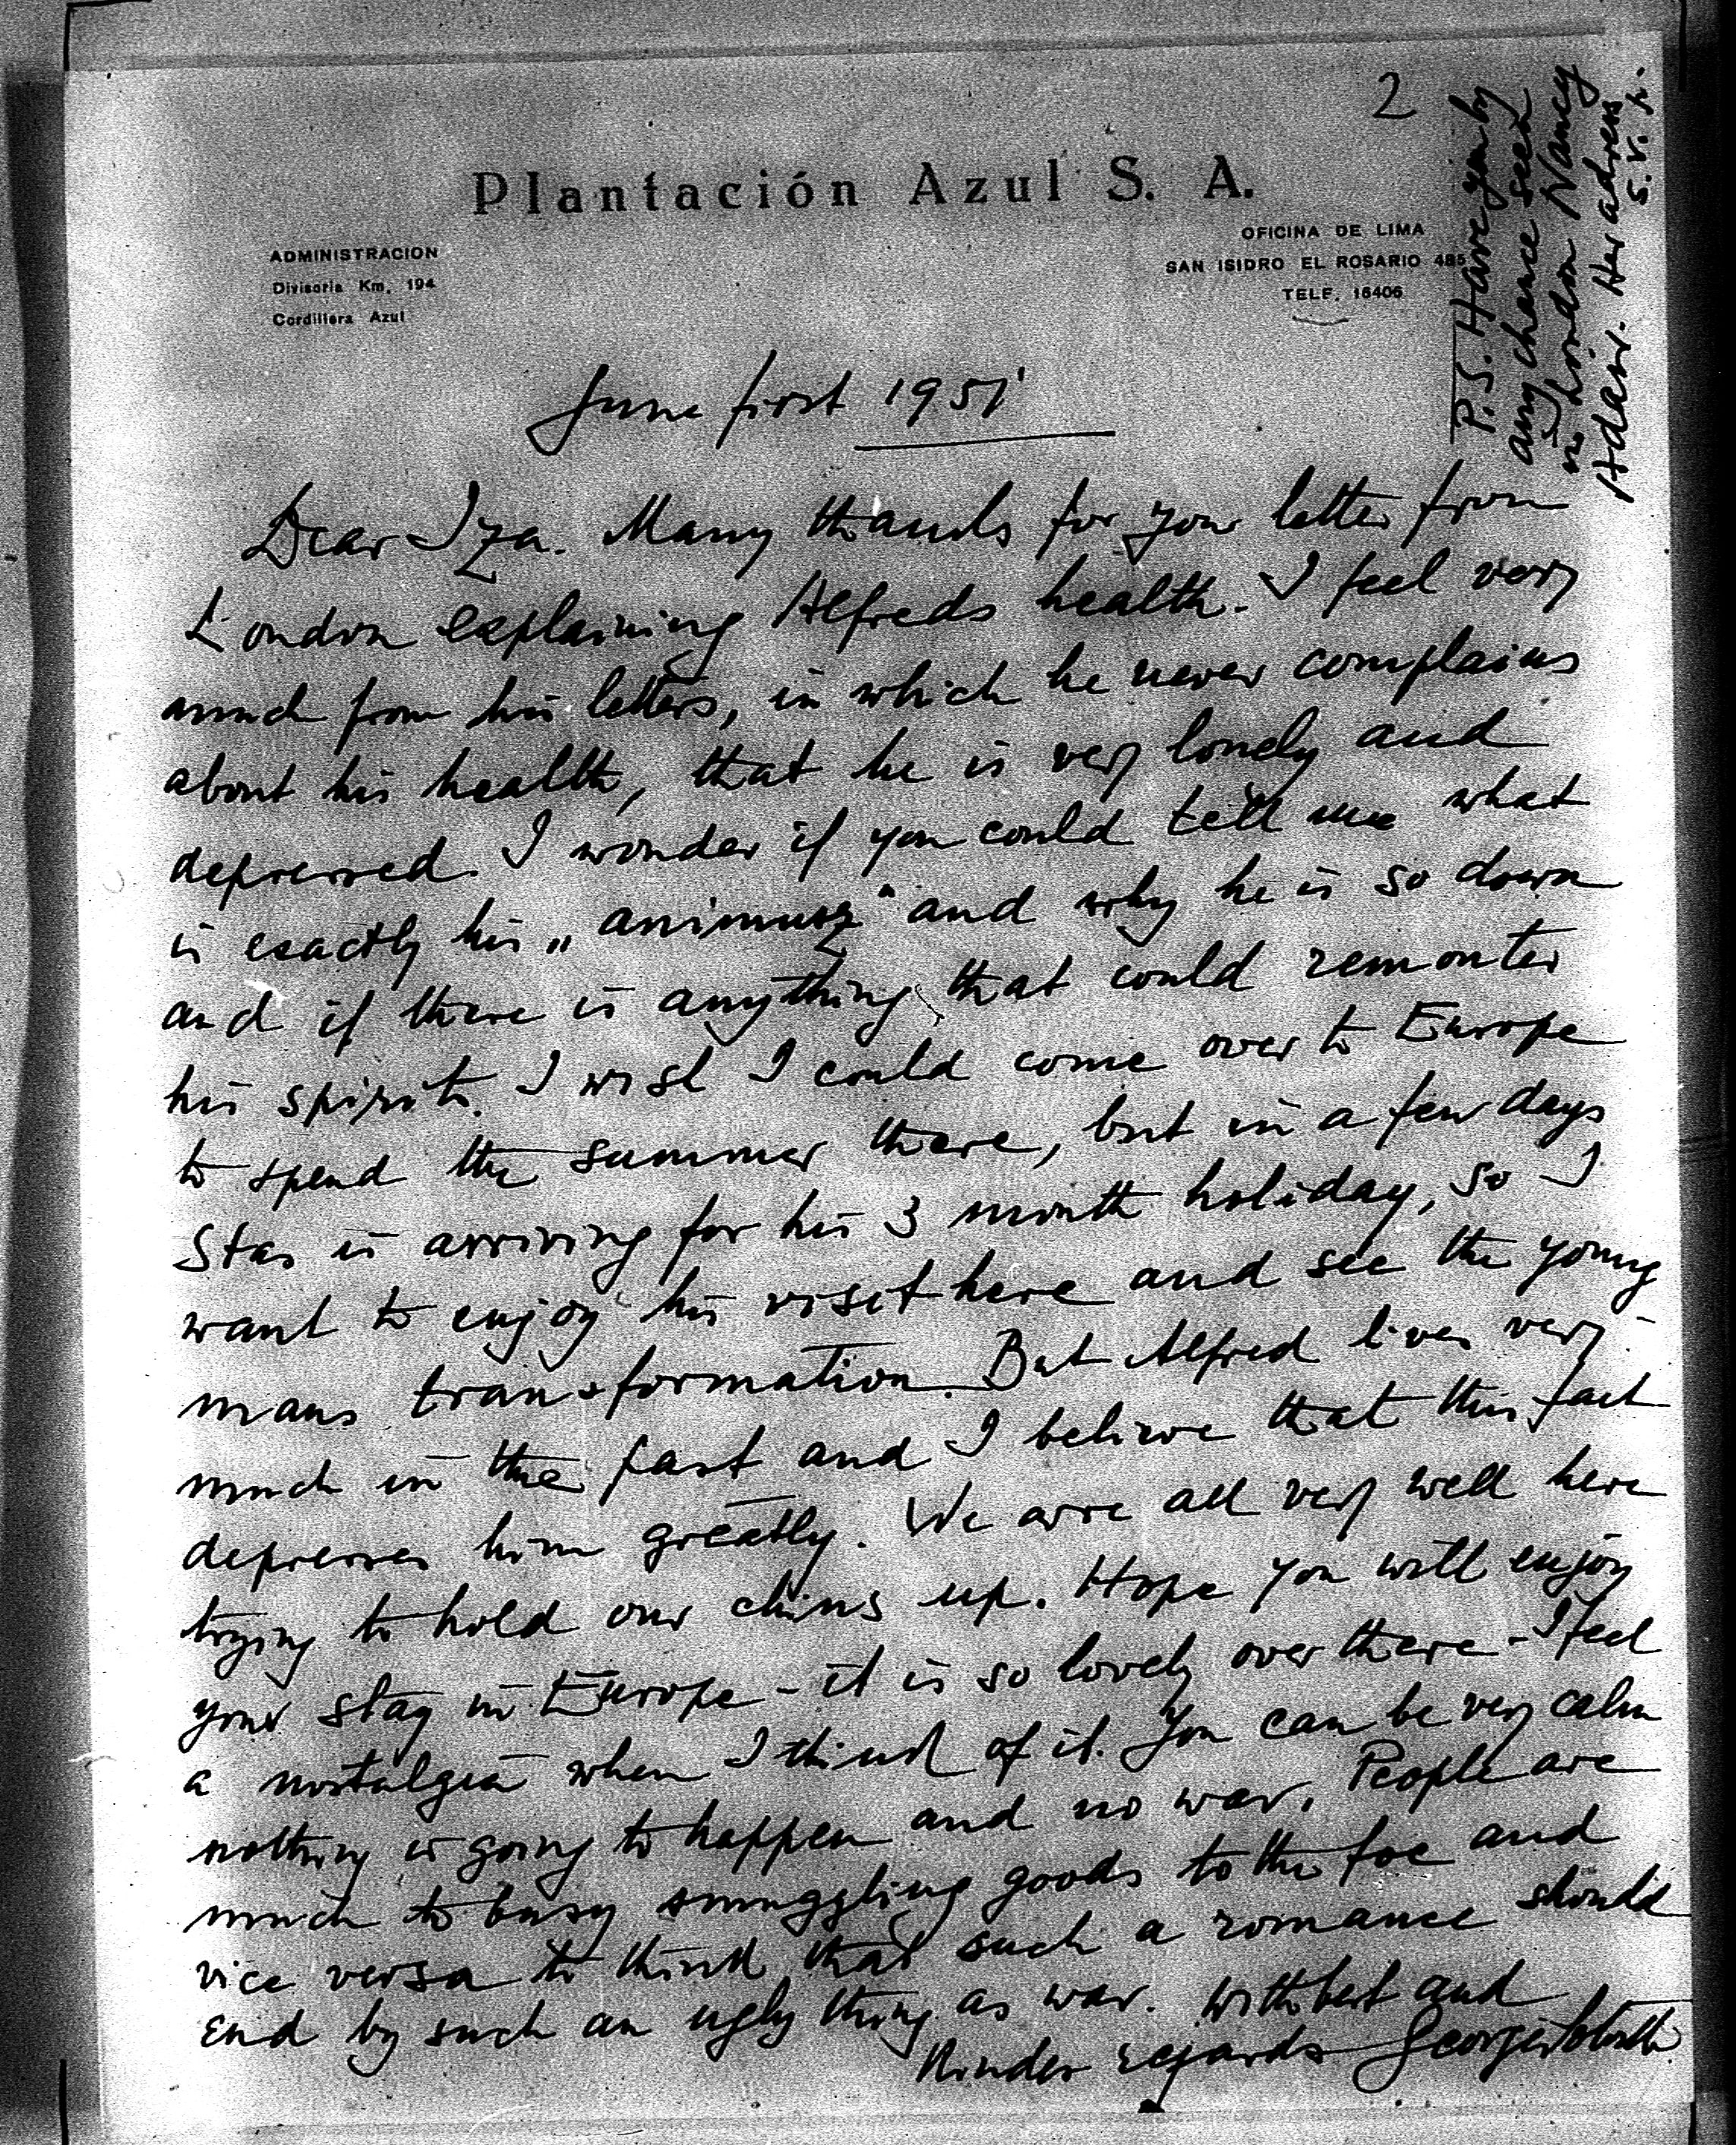 2
Plantación Azul S. A.
ADMINISTRACION
Divisoria Km. 194
Cordillera Azul
OFICINA DE LIMA
SAN ISIDRO EL ROSARIO 485
TELF. 16406
P.S. Have you by
any chance seen
in London Nancy
Adair. Her adress
s.v.p.
June first 1951
Dear Iza. Many thanks for your letter from
London explaining Alfreds health. I feel very
much from his letters, in which he never complains
about his health, that he is very lonely and
depressed. I wonder if you could tell me what
is exactly his „animusz" and why he is so down
and if there is anything that could remonter
his spirits. I wish I could come over to Europe
to spend the summer there, but in a few days
Stas is arriving for his 3 month holiday, so I
want to enjoy his visit here and see the young
mans transformation. But Alfred lives very
much in the past and I believe that this fact
depresses him greatly. We are all very well here
trying to hold our chins up. Hope you will enjoy
your stay in Europe - it is so lovely over there - I feel
a nostalgia when I think of it. You can be very calm
nothing is going to happen and no war. People are
much to busy smuggling goods to the foe and
vice versa to think that such a romance should
end by such an ugly thing as war. With best and
kinder regards George